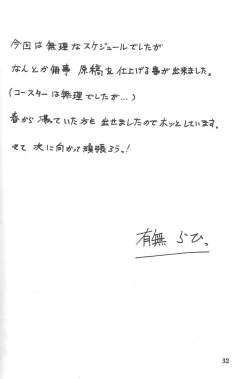 今回は無理なスケジュールでしたが
なんとか無事 原稿を仕上げる事が出来ました。
(コースターは無理でしたが…)
春から 滞っていた方も 出せましたのでホッとしています。
さて 次に向かって頑張ろう!
有無 らひ。
32